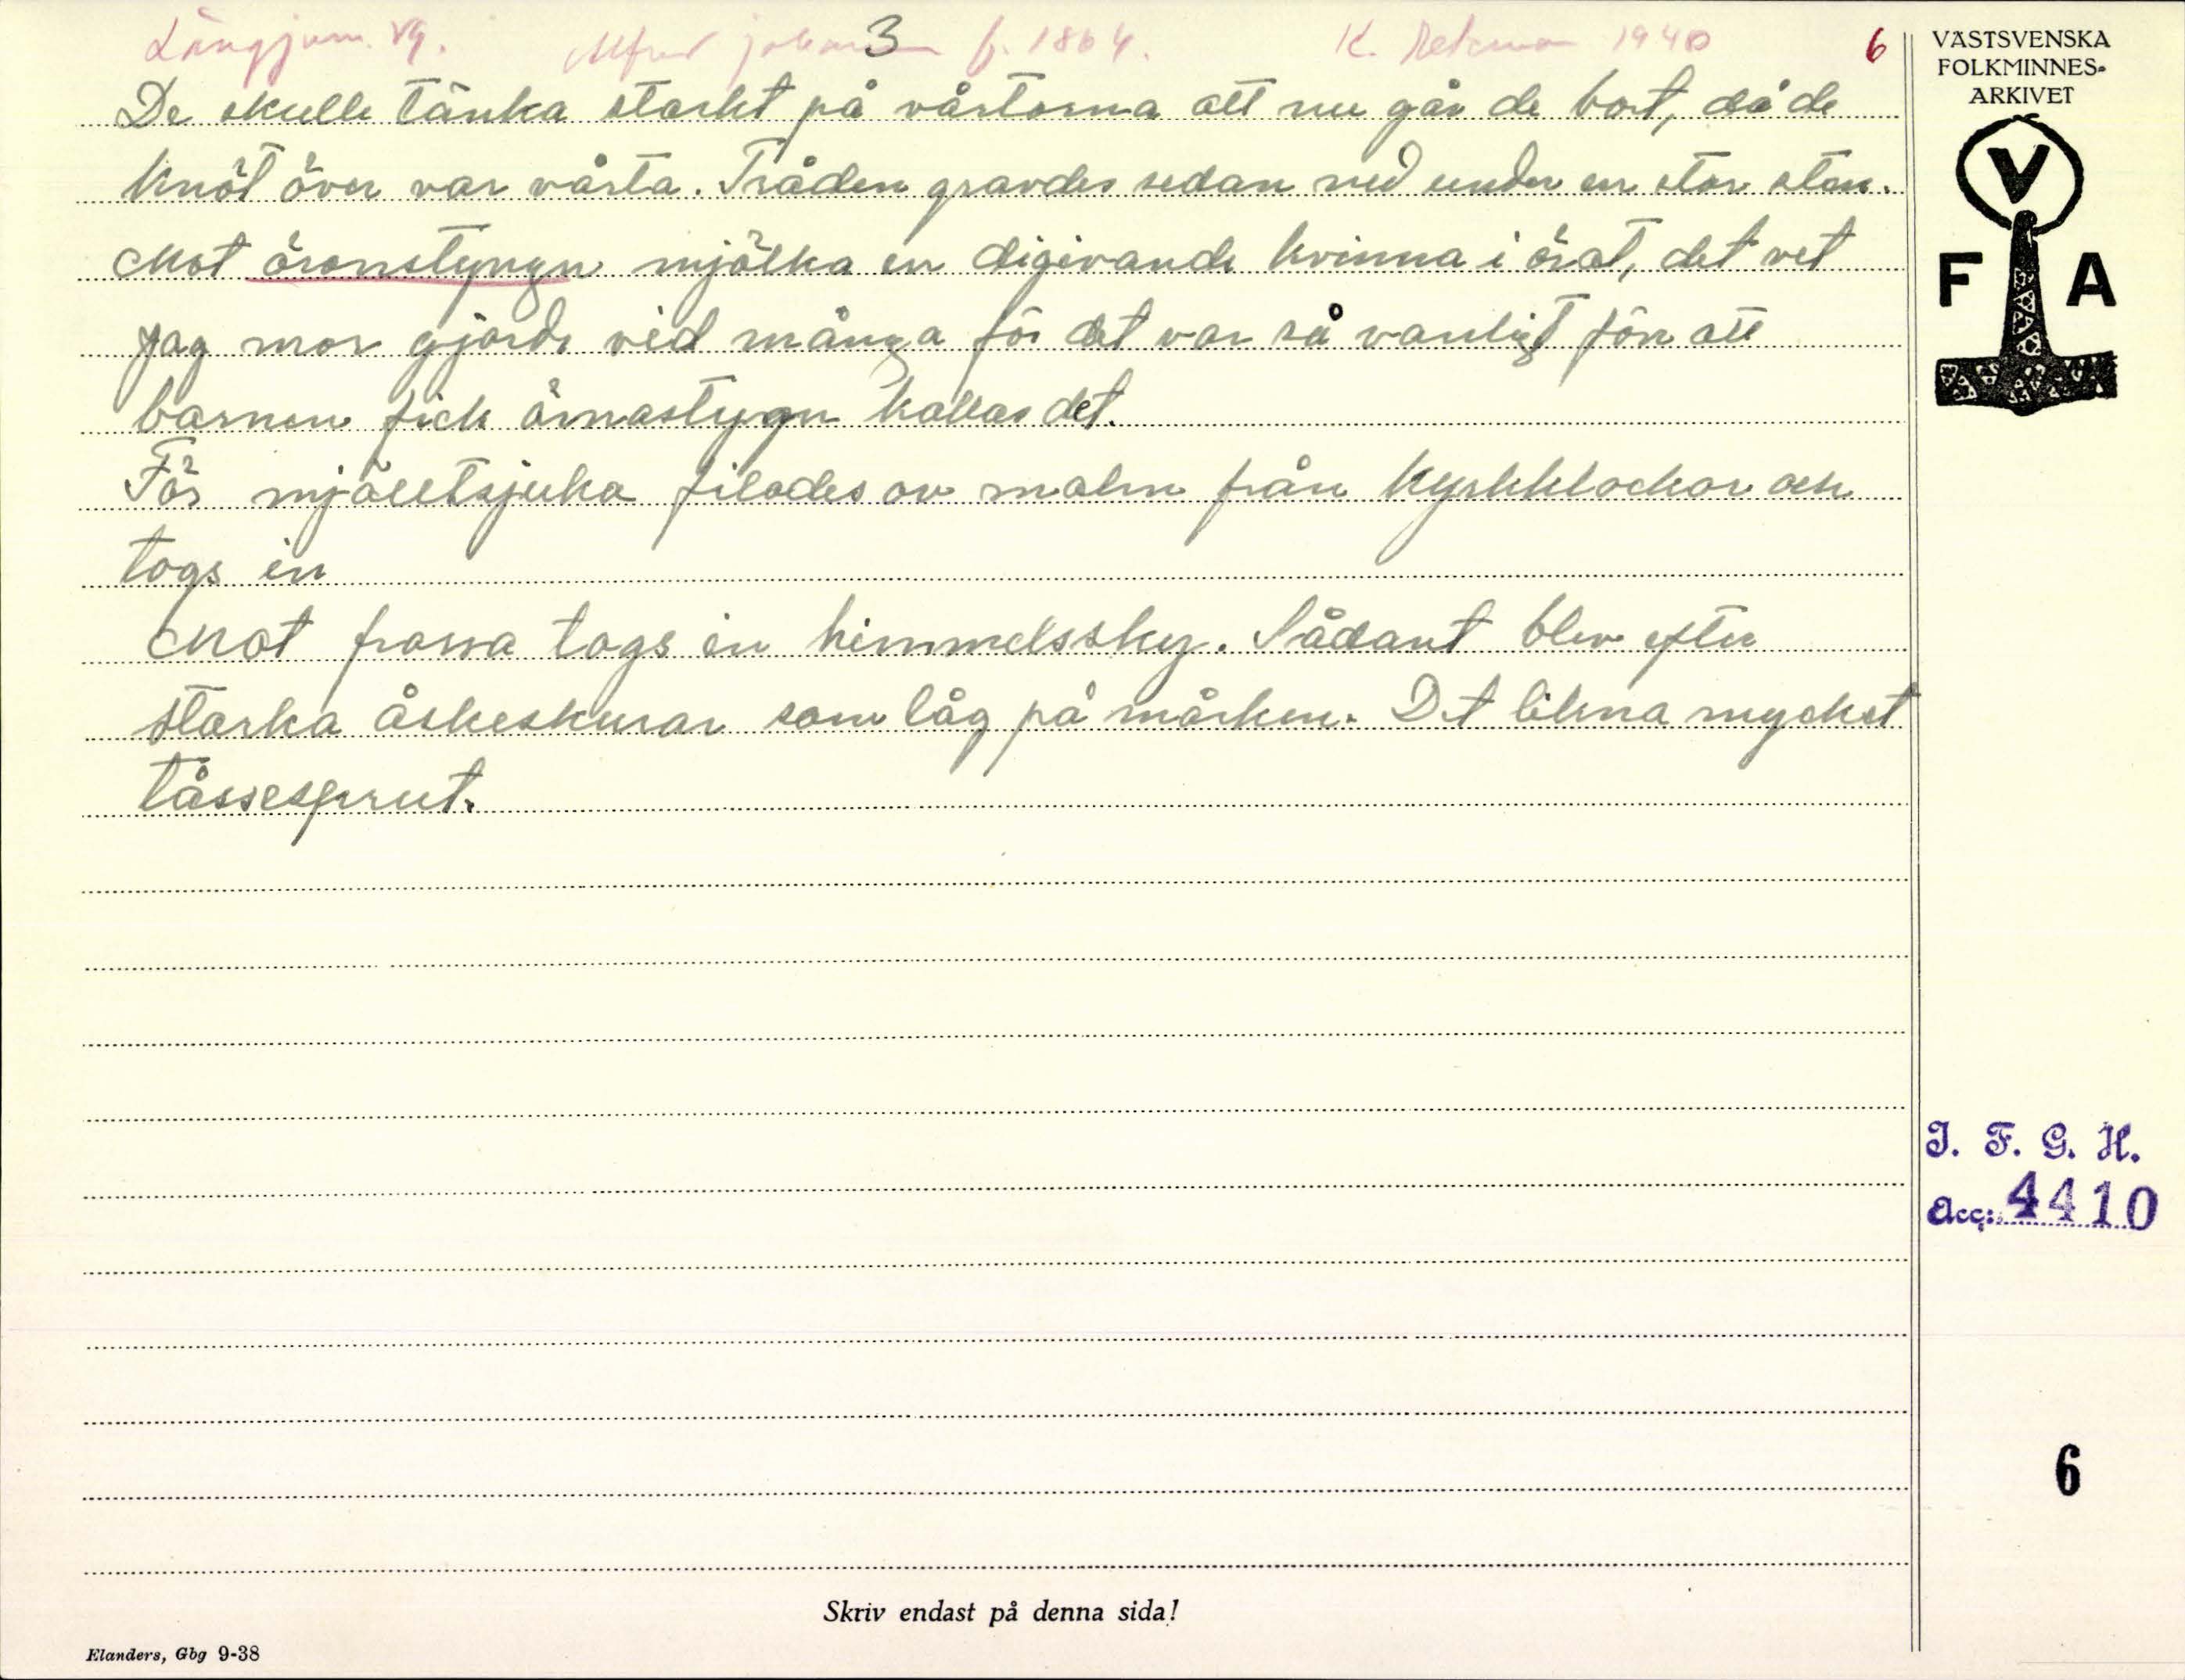 Långjum. Vg. Alfred Johansson f. 1864. K. 1940
3
6
De skulle tänka starkt på vårtorna att nu går de bort, då de
knöt över var vårta. Tråden gravdes sedan ned under en stor sten.
Mot öronstyngn mjölka en digivande kvinna i örat, det vet
jag mor gjorde vid många för det var så vanligt förr att
barnen fick örnastygn kallas det.
För mjälltsjuka filades av malm från kyrkklockor och
togs in
Mot frossa togs in himmelssky. Sådant blev efter
starka åskeskurar som låg på marken. Det likna mycket
tåssesprut.
VÄSTSVENSKA
FOLKMINNES-
ARKIVET
V
F A
I. F. G. H.
Acc: 4410
6
Skriv endast på denna sida!
Elanders, Gbg 9-38